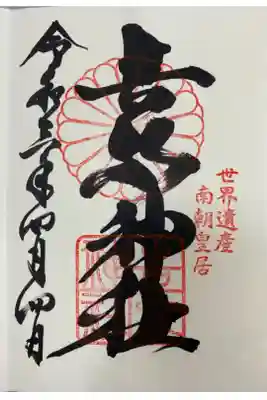 世界遺産
南朝皇居
吉水神社
令和三年四月四日